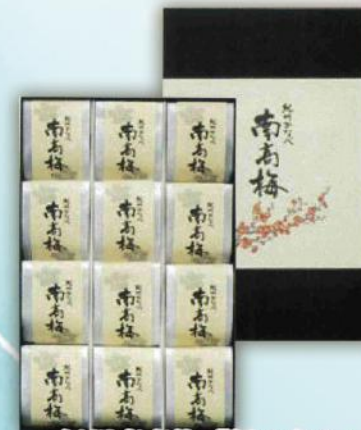 紀州みなべ
南高梅
紀州みなべ
南高梅
紀州みなべ
南高梅
紀州みなべ
南高梅
紀州みなべ
南高梅
紀州みなべ
南高梅
紀州みなべ
南高梅
紀州みなべ
南高梅
紀州みなべ
南高梅
紀州みなべ
南高梅
紀州みなべ
南高梅
紀州みなべ
南高梅
紀州みなべ
南高梅